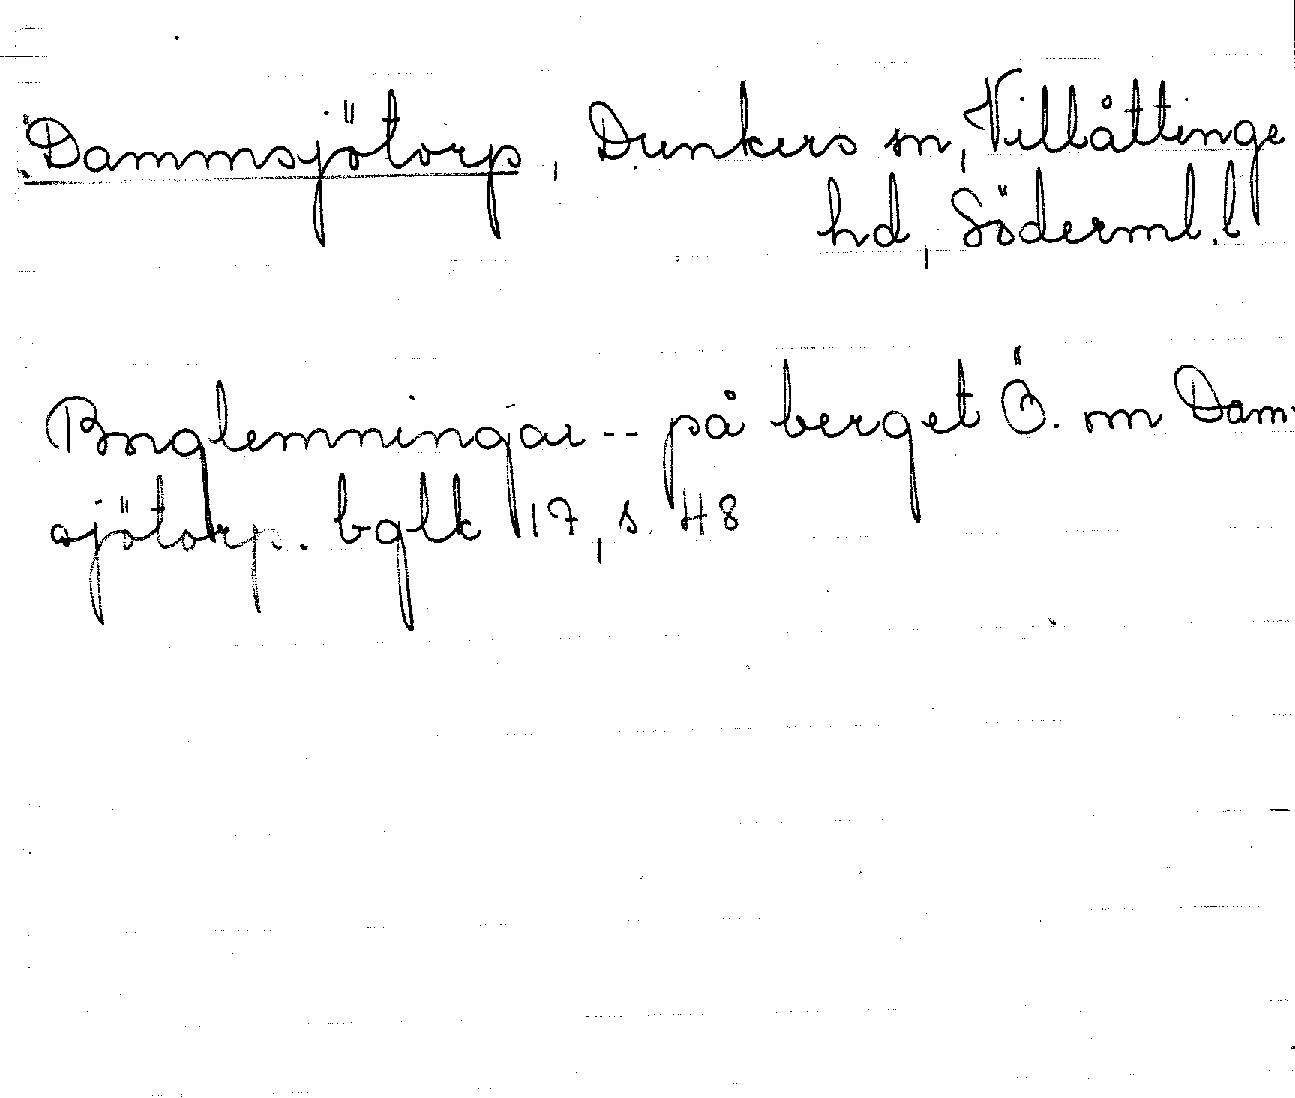 Dammsjötorp, Dunkers sn, Villåttinge
hd, Söderml. l
Borglemningar -- på berget Ö. om Dam-
sjötorp. bglk 17, s. 48